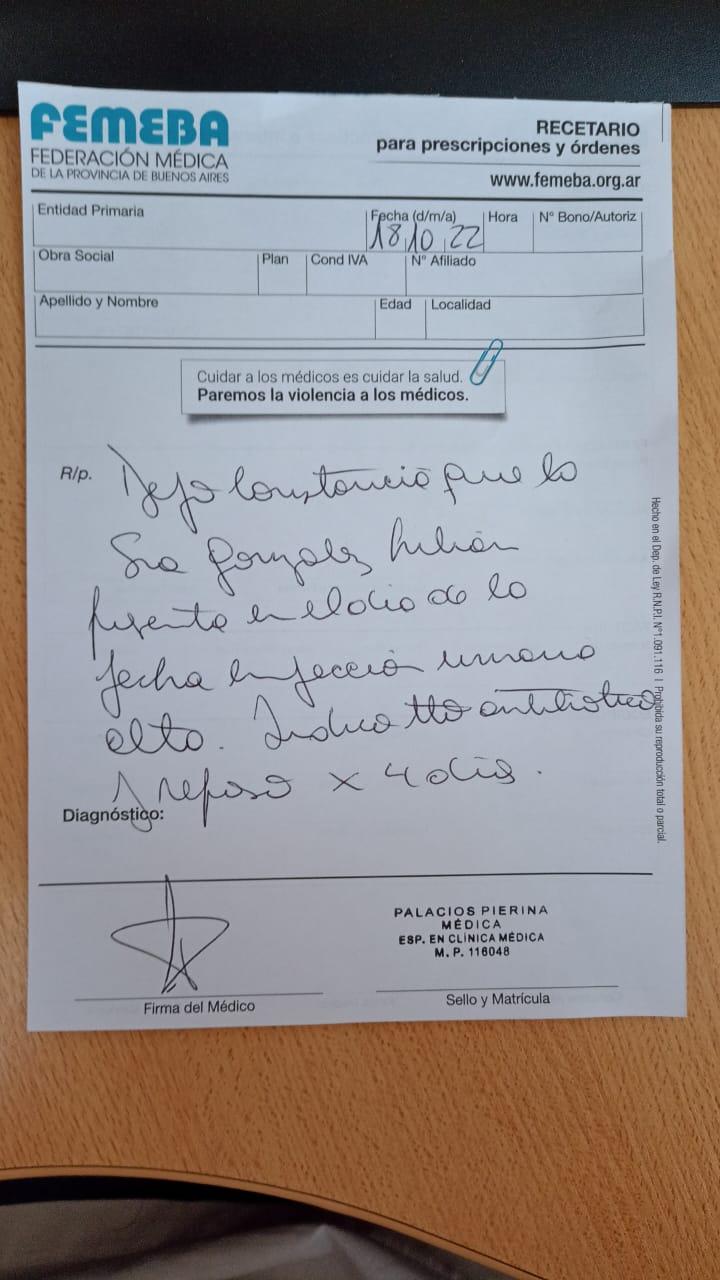 FEMEBA
FEDERACIÓN MÉDICA
DE LA PROVINCIA DE BUENOS AIRES
RECETARIO
para prescripciones y órdenes
www.femeba.org.ar
Entidad Primaria
Fecha (d/m/a) Hora Nº Bono/Autoriz
18 10 22
Obra Social Plan Cond IVA Nº Afiliado
Apellido y Nombre Edad Localidad
Cuidar a los médicos es cuidar la salud.
Paremos la violencia a los médicos.
R/p. Dejo constancia que la
Sra Gonzalez
presenta en el dia de la
fecha infección urinaria
alta. Indico tto antibiotico
y reposo x 4 dias.
Diagnóstico:
PALACIOS PIERINA
MÉDICA
ESP. EN CLÍNICA MÉDICA
M. P. 116048
Firma del Médico Sello y Matrícula
Hecho en el Dep. de Ley R.N.P.I. Nº1.091.116 I Prohibida su reproducción total o parcial.